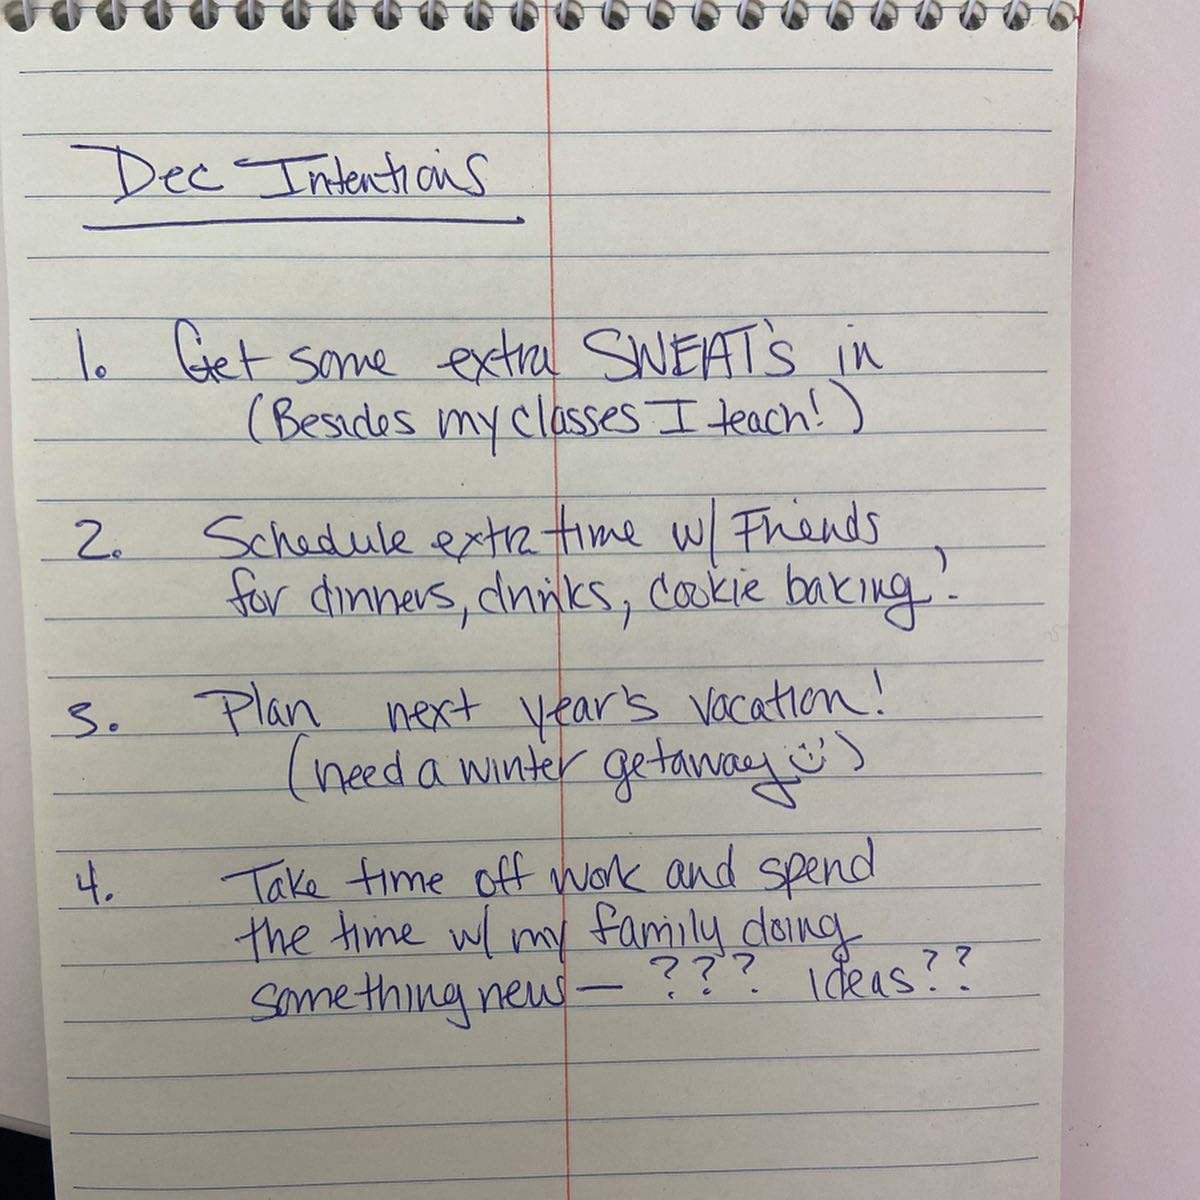 Dec Intentions
1. Get some extra SWEAT's in
(Besides my classes I teach!)
2. Schedule extra time w/ Friends
for dinners, drinks, cookie baking!
3. Plan next year's vacation!
(need a winter getaway ☺)
4. Take time off work and spend
the time w/ my family doing
something new — ??? Ideas??